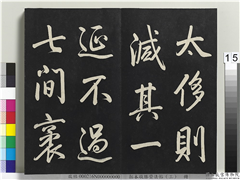 太侈則
減其一
延不過
七間裹
15